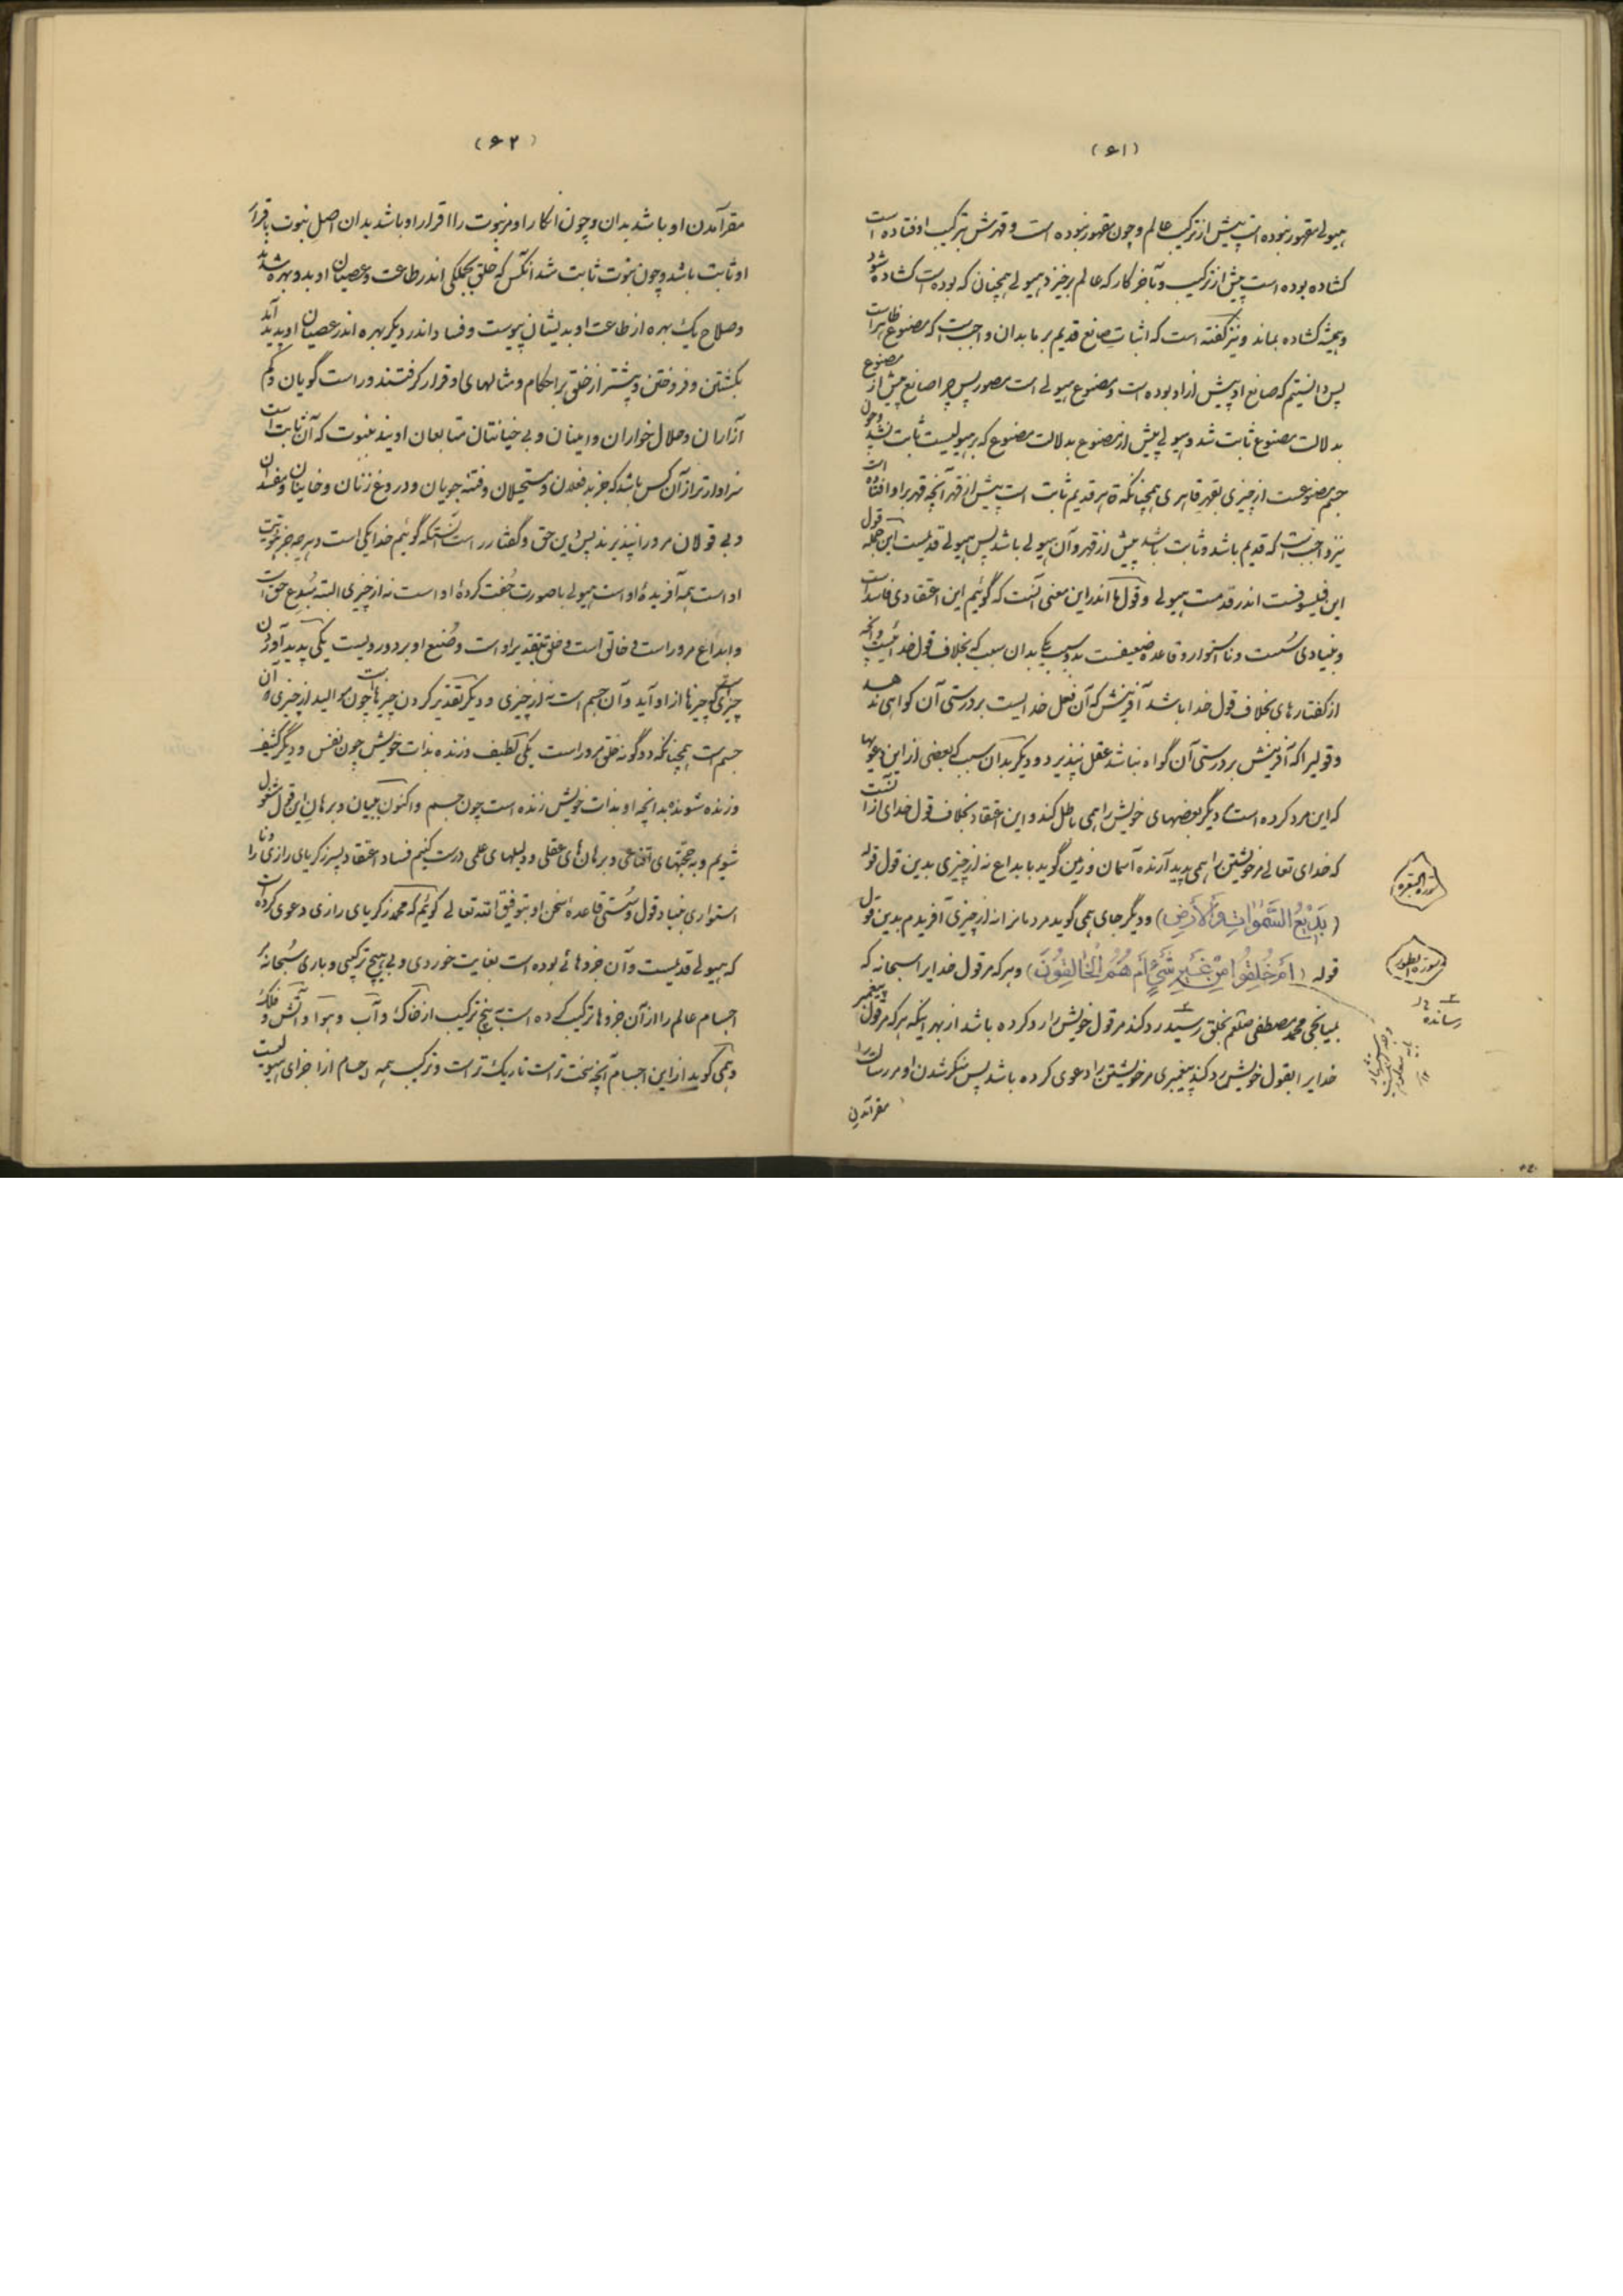 (۶۱)
هیولی مقهور نبوده است پیش از ترکیب عالم و چون مقهور نبوده است و قهرش بترکیب اوفتاده است
گشاده بوده است پیش از ترکیب و بآخر کار که عالم برخیزد هیولی همچنان که بوده است گشاده شود
و همیشه گشاده بماند و نیز گفته است که اثبات صانع قدیم بر ما بدان واجبست که مصنوع ظاهر است
پس دانستیم که صانع او پیش از او بوده است و مصنوع هیولی است مصور پس چرا صانع پیش از مصنوع
بدلالت مصنوع ثابت شد و هیولی پیش از مصنوع بدلالت مصنوع که بر هیولیست ثابت نشد و چون
جسم مصنوعست از چیزی بقهر قاهری همچنانکه قاهر قدیم ثابت است پیش از قهر آنچه قهر بر او افتاده است
نیز واجبست که قدیم باشد و ثابت باشد پیش از قهر و آن هیولی باشد پس هیولی قدیمست این جمله قول
این فیلسوفست اندر قدمت هیولی و قول ما اندر این معنی آنست که گوئیم این اعتقادی فاسد است
و بنیادی سست و نا استوار و قاعده ضعیفست بدو سبب یکی بدان سبب که بخلاف قول خدا ئیست و آنچه
از گفتارهای بخلاف قول خدا باشد آفرینش که آن فعل خدایست بر درستی آن گواهی ندهد
و قولیرا که آفرینش بر درستی آن گواه نباشد عقل نپذیرد و دیگر بدان سبب که بعضی از این دعویها
که این مرد کرده است دیگر بعضهای خویش را همی باطل کند و این اعتقاد بخلاف قول خدای از آنست
که خدای تعالی مر خویشتن را همی پدید آرنده آسمان و زمین گوید بابداع نه از چیزی بدین قول قوله
(بَدِيْعُ السَّمٰوَاتِ وَالْأَرْضِ) و دیگر جای همی گوید مردمانرا نه از چیزی آفریدم بدین قول
قوله (اَمْ خُلِقُوا مِنْ غَيْرِ شَيْءٍ أَمْ هُمُ الْخَالِقُونَ) و هر که مر قول خدایرا سبحانه که
بمیانجی محمد مصطفی صلعم بخلق رسید رد کند مر قول خویش را رد کرده باشد از بهر اینکه هر که مر قول پیغمبر
خدایرا بقول خویش رد کند پیغمبری مر خویشتن را دعوی کرده باشد پس منکر شدن او مر رسالت را
مقر آمدن
سورة البقره
سورة الطور
رسانده
(۶۲)
مقر آمدن او باشد بدان و چون انکار او مر نبوت را اقرار او باشد بدان اصل نبوت باقرار
او ثابت باشد و چون نبوت ثابت شد آنکس که خلق بجملگی اندر طاعت و عصیان او بدو بهره شدند
و صلاح یک بهره از طاعت او بدیشان پیوست و فساد اندر دیگر بهره اندر عصیان او پدید آید
بکشتن و فروختن و بیشتر از خلق بر احکام و مثالهای او قرار گرفتند و راست گویان و کم
آزاران و حلال خواران و امینان و بی خیانتان متابعان اویند بنبوت که آن ثابت است
سزاوارتر از آن کس باشد که جز بد فعلان و مستحیلان و فتنه جویان و دروغ زنان و خاینان و مفسدان
و بی قولان مر ورا نپذیرند پس دین حق و گفتار راست آنستکه گوئیم خدا یکی است و هر چه جز هویت
او است همه آفریدهٔ او است هیولی با صورت جُفت کردهٔ او است نه از چیزی البته مُبدِع حق است
و ابداع مرور است و خالق است و خلق بتقدیر او است و صُنع او بر دو رویست یکی پدید آوردن
چیزی که چیزها از او آید و آن جسم است نه از چیزی و دیگر تقدیر کردن چیزهاست چون موالید از چیزی که آن
جسم است همچنانکه دو گونه خلق مرور است یکی لطیف و زنده بذات خویش چون نفس و دیگر کثیف
و زنده شونده بدانچه او بذات خویش زنده است چون جسم و اکنون به بیان و برهان این قول مشغول
شویم و بحجتهای اقناعی و برهان های عقلی و دلیلهای علمی درست کنیم فساد اعتقاد پسر زکریای رازی را و نا
استواری بنیاد قول و سُستی قاعده سخن او بتوفیق الله تعالی گوئیم که محمد زکریای رازی دعوی کرده است
که هیولی قدیمست و آن جزوهائی بوده است بغایت خوردی و بی هیچ ترکیبی و باری سُبحانه که
اجسام عالم را از آن جزوها ترکیب کرده است به پنج ترکیب از خاک و آب و هوا و آتش و فلک
و همی گوید از این اجسام آنچه سخت تر است تاریک تر است و ترکیب همه اجسام از اجزای هیولیست